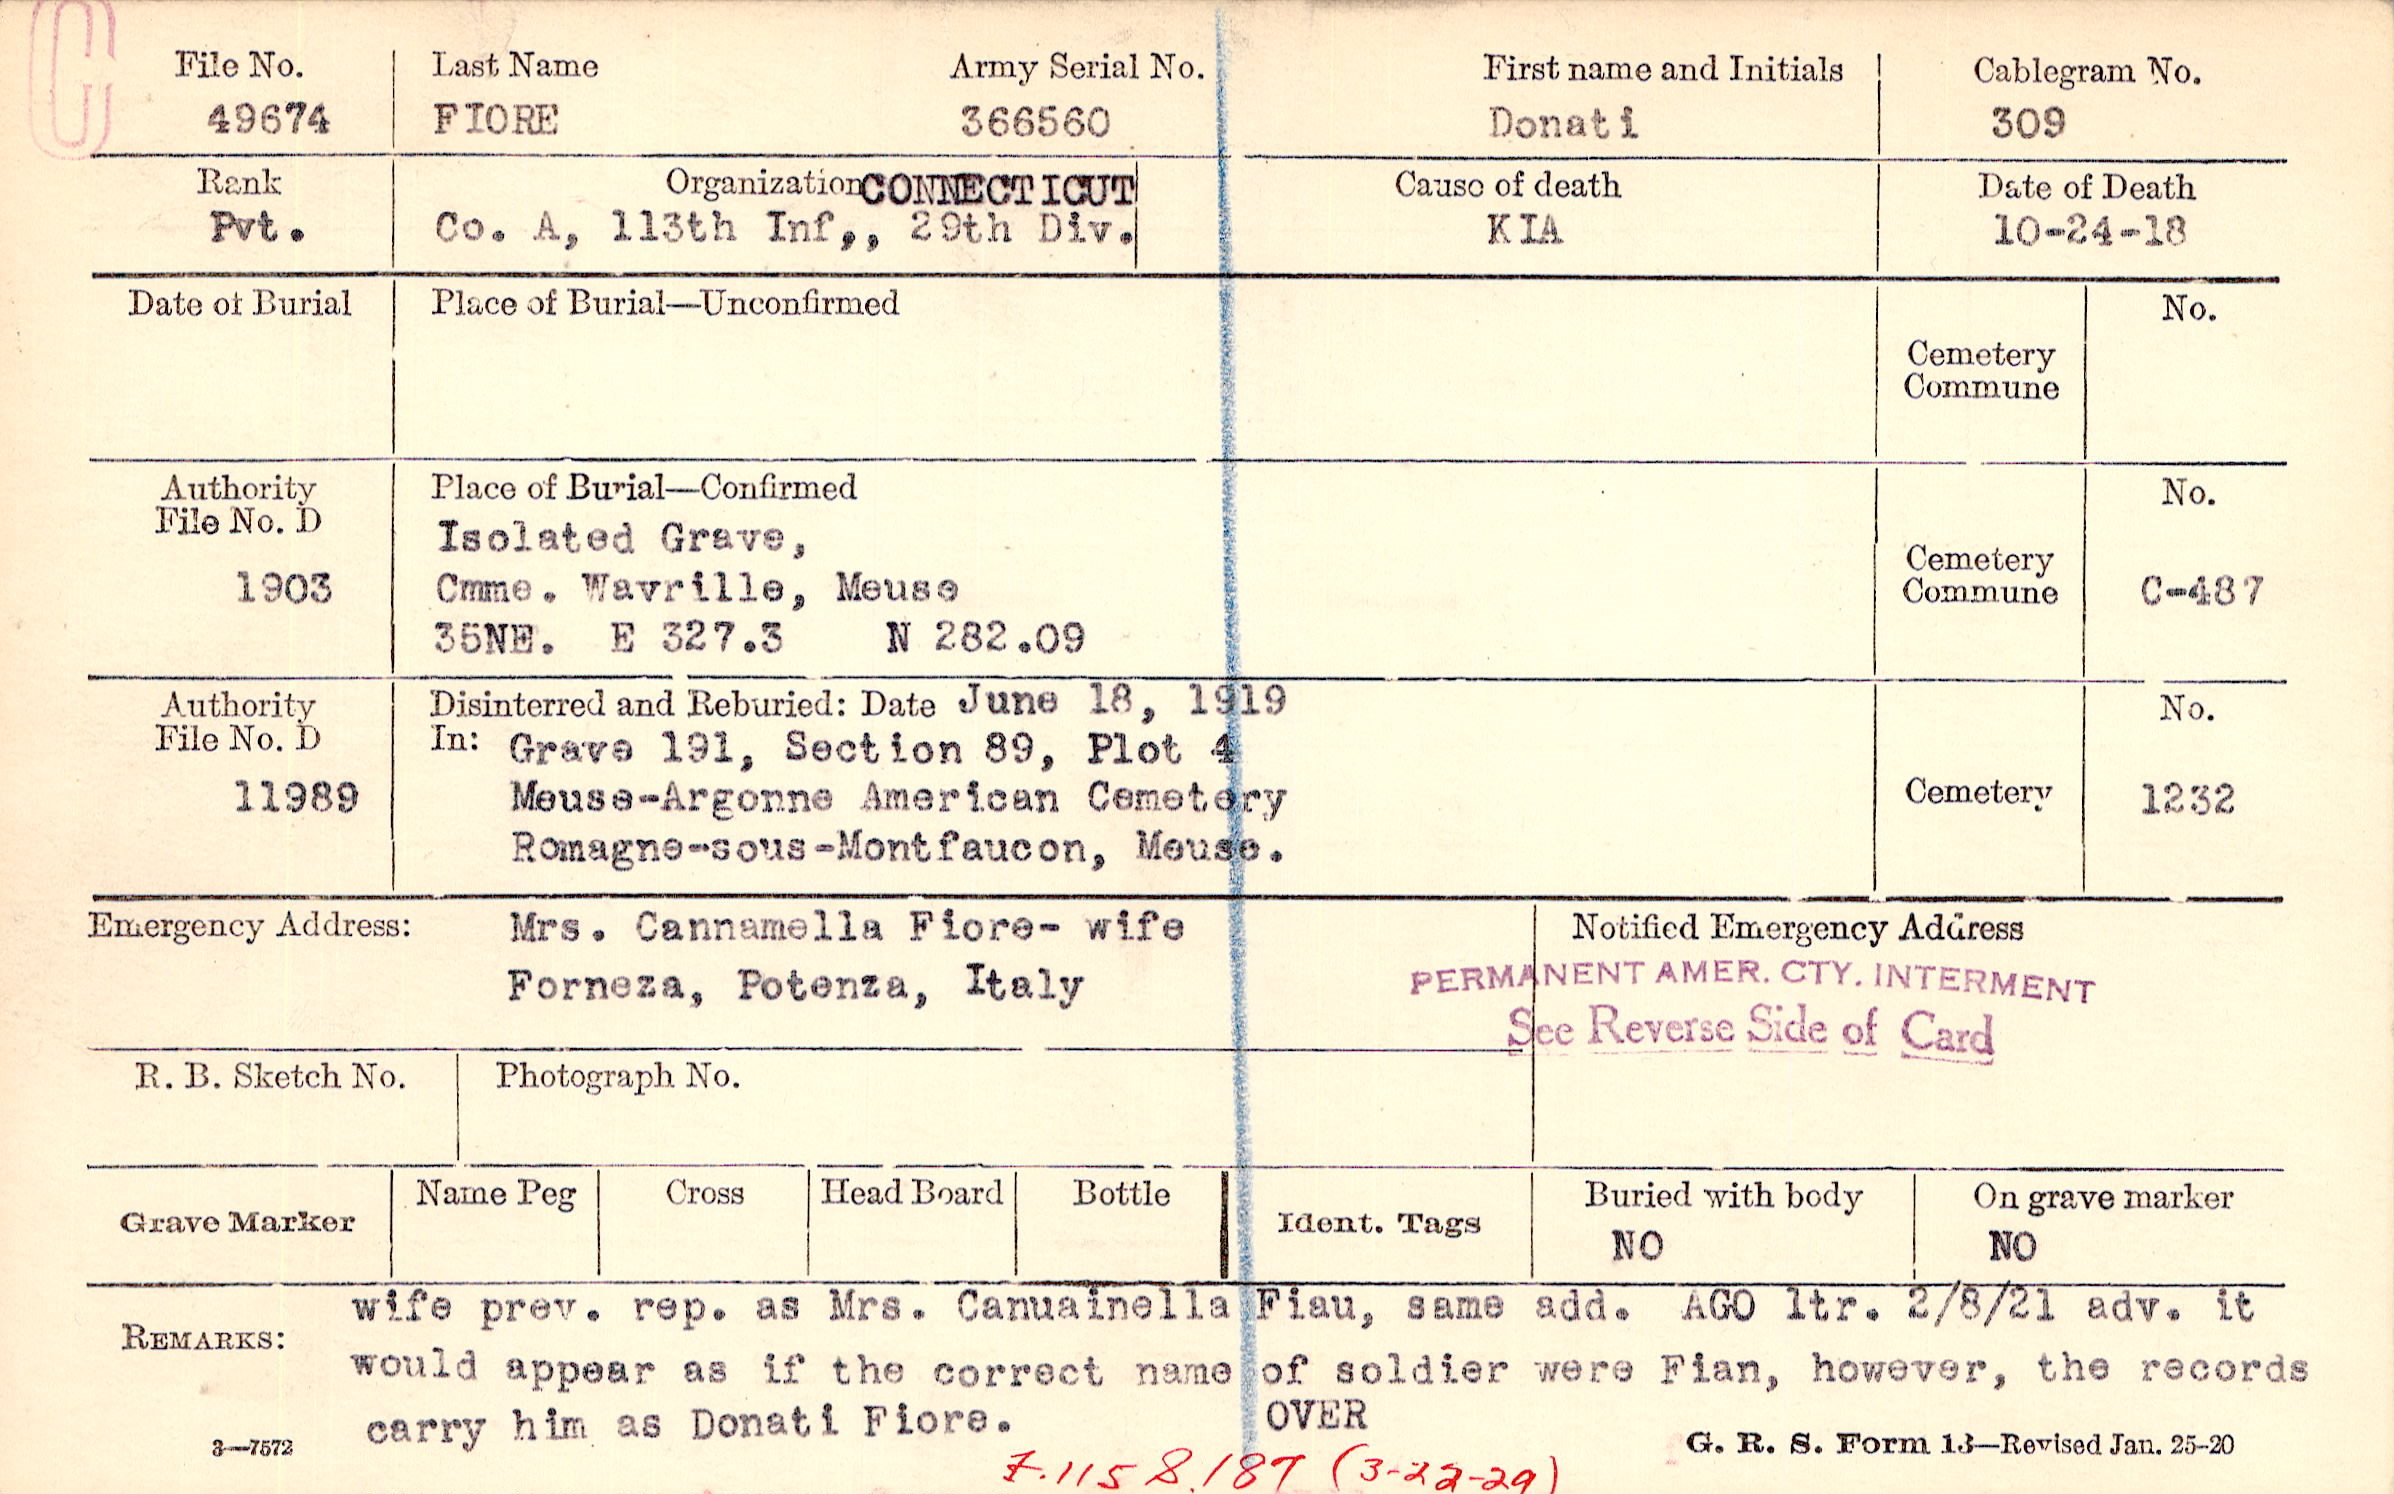 C
File No. Last Name Army Serial No. First name and Initials Cablegram No.
49674 FIORE 366560 Donati 309
Rank Organization CONNECTICUT Cause of death Date of Death
Pvt. Co. A, 113th Inf,, 29th Div. KIA 10-24-18
Date of Burial Place of Burial—Unconfirmed No.
Cemetery
Commune
Authority Place of Burial—Confirmed No.
File No. D
Isolated Grave,
1903 Cmme. Wavrille, Meuse Cemetery
Commune C-487
35NE. E 327.3 N 282.09
Authority Disinterred and Reburied: Date June 18, 1919 No.
File No. D In: Grave 191, Section 89, Plot 4
11989 Meuse-Argonne American Cemetery Cemetery 1232
Romagne-sous-Montfaucon, Meuse.
Emergency Address: Mrs. Cannamella Fiore- wife Notified Emergency Address
Forneza, Potenza, Italy PERMANENT AMER. CTY. INTERMENT
See Reverse Side of Card
R. B. Sketch No. Photograph No.
Grave Marker Name Peg Cross Head Board Bottle Ident. Tags Buried with body On grave marker
NO NO
REMARKS: wife prev. rep. as Mrs. Canuainella Fiau, same add. AGO ltr. 2/8/21 adv. it
would appear as if the correct name of soldier were Fian, however, the records
carry him as Donati Fiore. OVER
3—7572 G. R. S. Form 13—Revised Jan. 25-20
(3-22-29)